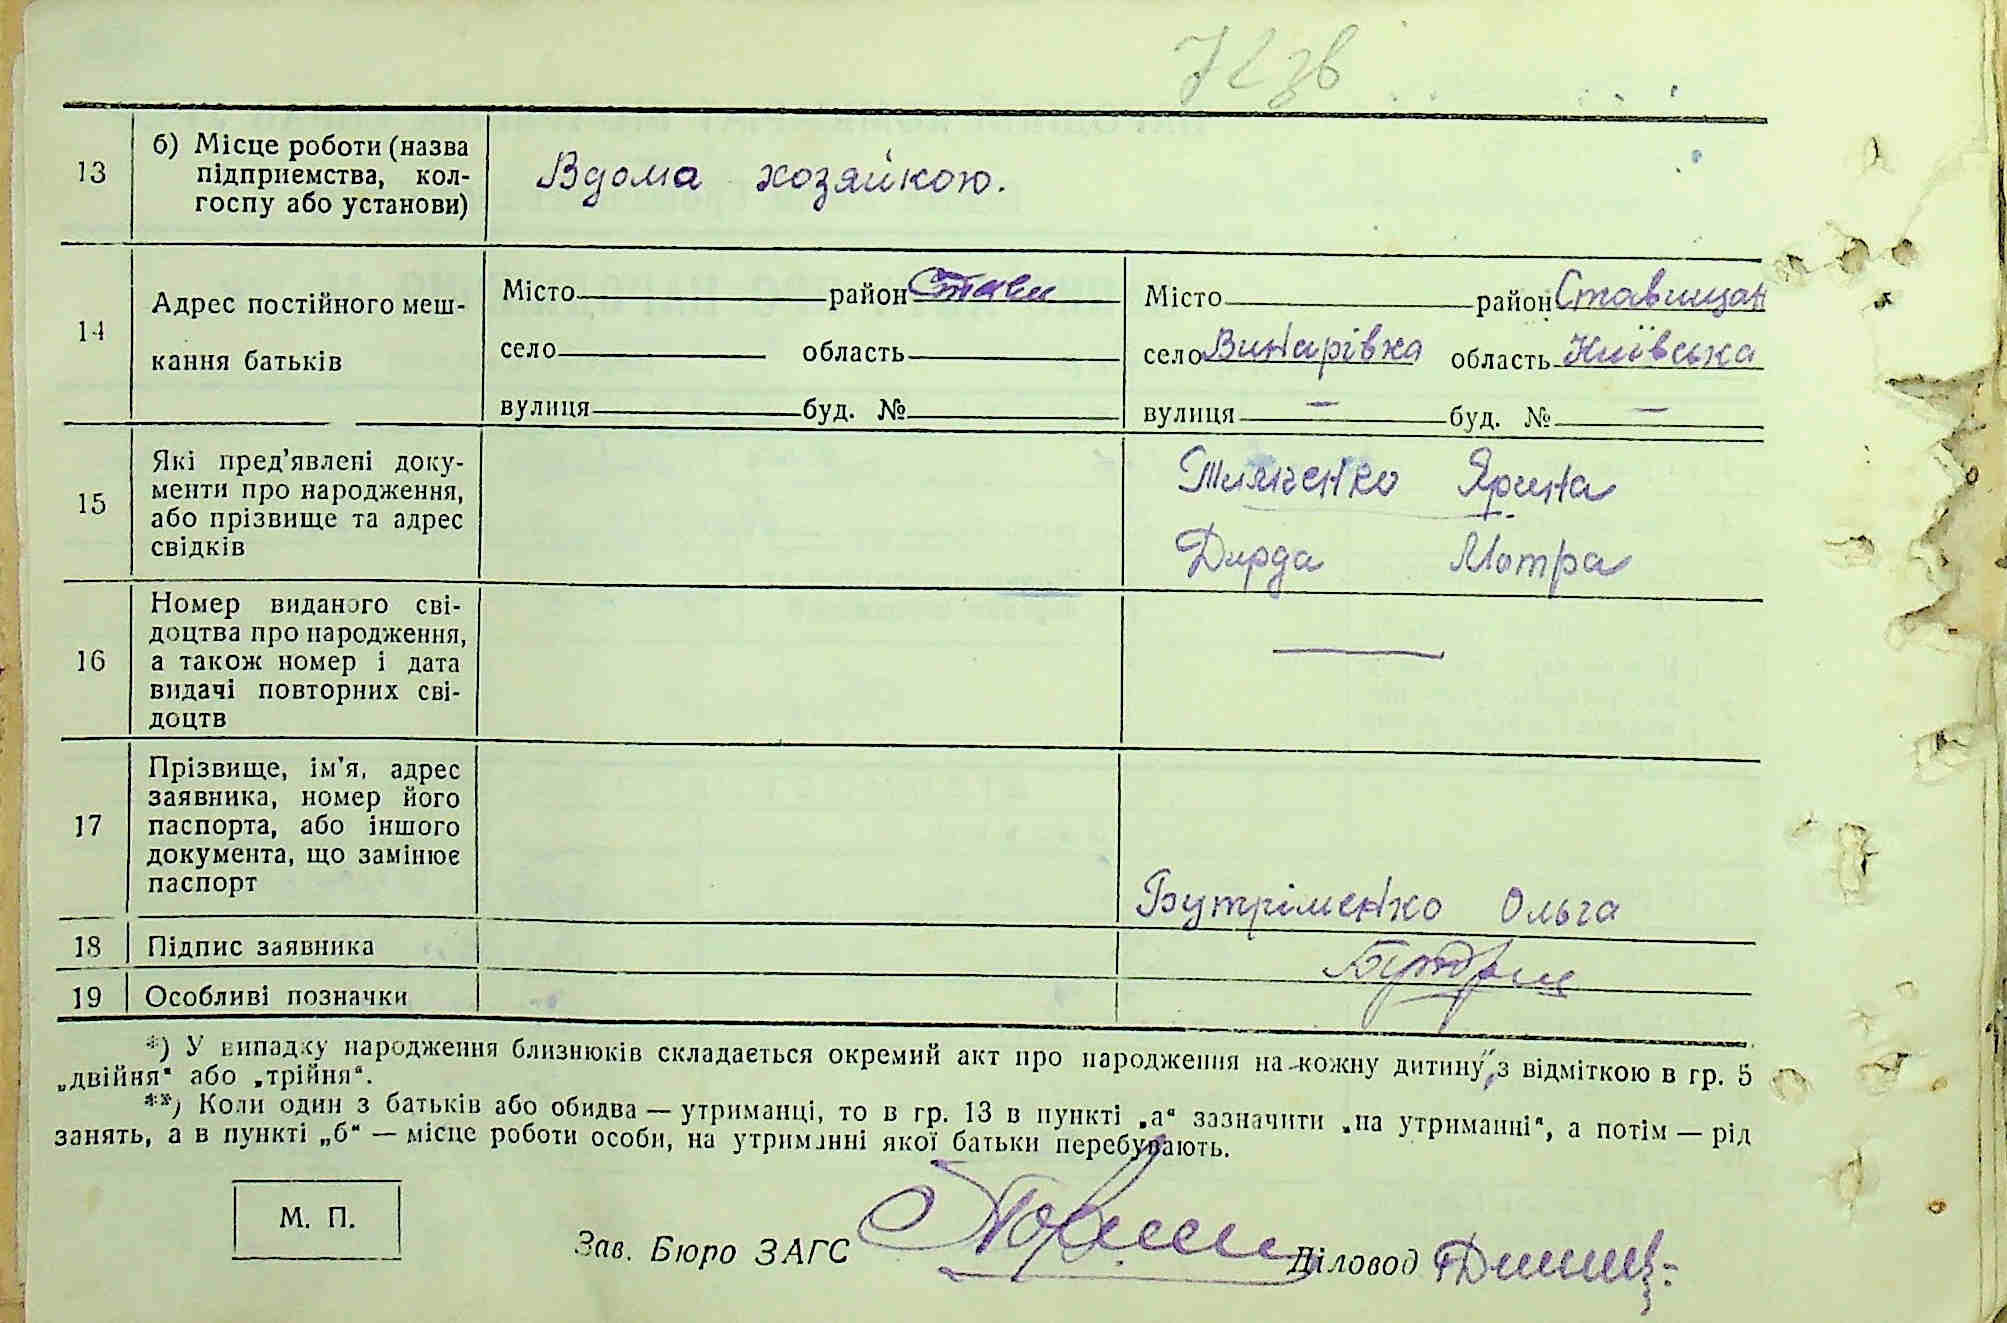 72зв
13
б) Місце роботи (назва
підприємства, кол-
госпу або установи)
Вдома хозяйкою.
14
Адрес постійного меш-
кання батьків
Місто район Стави
село область
вулиця буд. №
Місто район Ставищан
село Винарівка область Київська
вулиця — буд. № —
15
Які пред'явлені доку-
менти про народження,
або прізвище та адрес
свідків
Тимченко Ярина
Дирда Мотра
16
Номер виданого сві-
доцтва про народження,
а також номер і дата
видачі повторних сві-
доцтв
—
17
Прізвище, ім'я, адрес
заявника, номер його
паспорта, або іншого
документа, що замінює
паспорт
Бутріменко Ольга
18
Підпис заявника
19
Особливі позначки
*) У випадку народження близнюків складається окремий акт про народження на кожну дитину з відміткою в гр. 5
„двійня“ або „трійня“.
**) Коли один з батьків або обидва — утриманці, то в гр. 13 в пункті „а“ зазначити „на утриманні“, а потім — рід
занять, а в пункті „б“ — місце роботи особи, на утриманні якої батьки перебувають.
М. П.
Зав. Бюро ЗАГС
Діловод